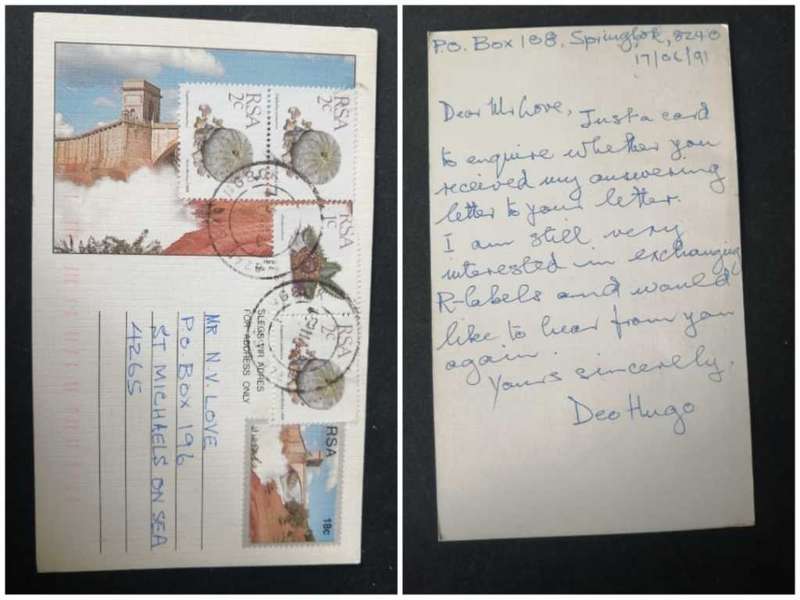 RSA
2c
RSA
2c
RSA
1c
RSA
2c
SLEGS VIR ADRES
FOR ADDRESS ONLY
RSA
18c
MR N.V. LOVE
P.O. BOX 196
ST MICHAELS ON SEA
4265
P.O. Box 188, Springbok, 8240
17/06/91
Dear Mr Love,
Just a card
to enquire whether you
received my answering
letter to your letter.
I am still very
interested in exchanging
R-labels and would
like to hear from you
again.
Yours sincerely,
Deo Hugo